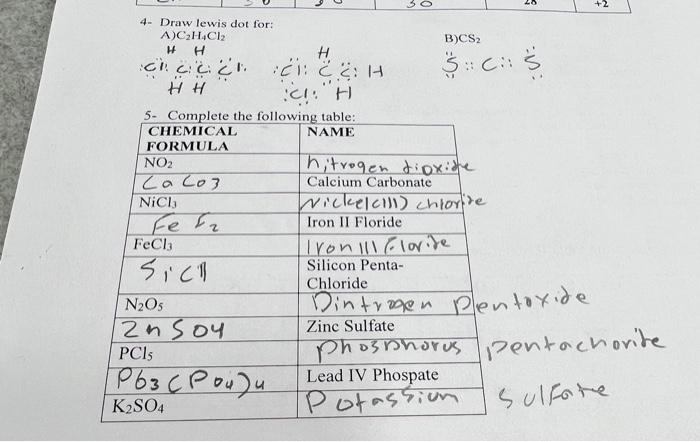 30 28 +2
4- Draw lewis dot for:
A)C₂H₄Cl₂ B)CS₂
H H H
:Cl: C: C: Cl: :Cl: C C: H S :: C :: S
H H :Cl: H
5- Complete the following table:
CHEMICAL FORMULA NAME
NO₂ nitrogen dioxide
CaCO3 Calcium Carbonate
NiCl₃ Nickel(III) chloride
FeF2 Iron II Floride
FeCl₃ Iron III Floride
Silicon Penta-
Chloride
N₂O₅ Dintrogen Pentoxide
ZnSO4 Zinc Sulfate
PCl₅ phosphorus pentachorite
Pb3(PO4)4 Lead IV Phospate
K₂SO₄ Potassium sulfate